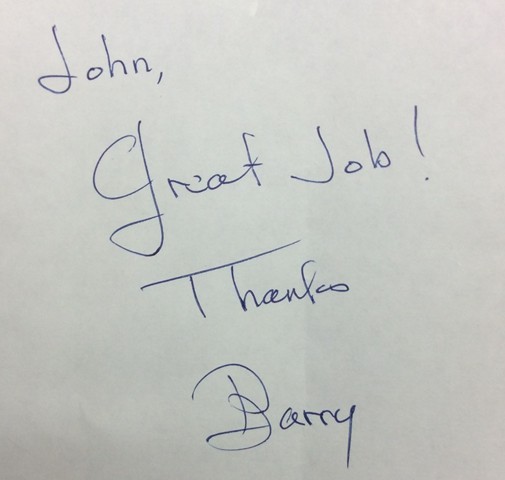 John,
Great Job!
Thanks
Barry